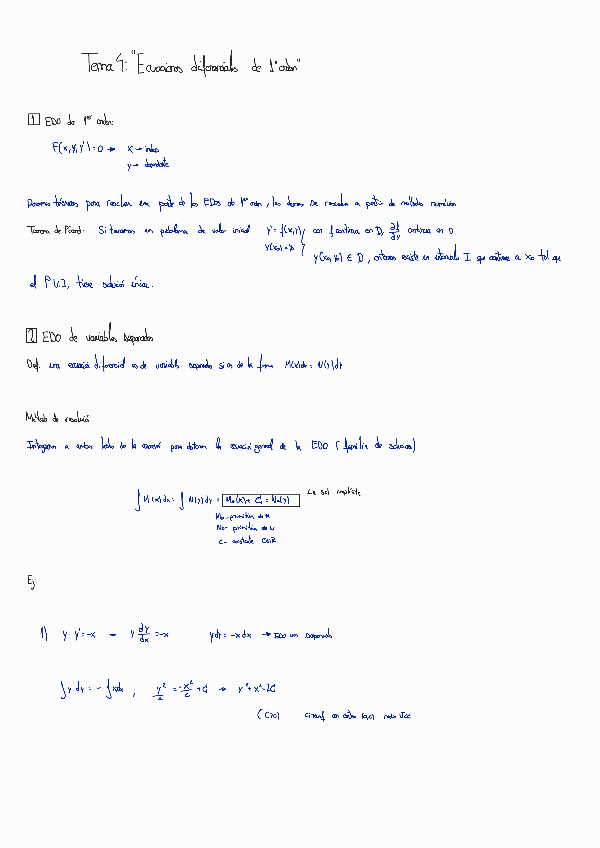 Tema 4: "Ecuaciones diferenciales de 1º orden"
1 EDO de 1er orden:
F(x,y,y')=0 → x → indep
y → dependiente
para resolver una parte de las EDOs de 1er orden, las demas se resuelven a partir de métodos numéricos
Teorema de Picard: Si tenemos un problema de valor inicial y' = f(x,y) con f continua en D, ∂f/∂y continua en D
y(x₀) = y₀ y(x₀,y₀) ∈ D, entonces existe un intervalo I que contiene a x₀ tal que
el P.V.I, tiene solución única.
2 EDO de variables separadas
Def: una ecuación diferencial es de variables separadas si es de la forma M(x)dx = N(y)dy
Método de resolución
Integramos a ambos lados de la ecuación para obtener la ecuación general de la EDO (familia de soluciones)
∫M(x)dx = ∫N(y)dy = M₀(x) + C = N₀(y) → sol implícita
M₀ - primitiva de M
N₀ - primitiva de N
C - constante C∈ℝ
Ej:
1) y · y' = -x → y dy/dx = -x y dy = -x dx → EDO var separadas
∫y dy = -∫x dx ; y²/2 = -x²/2 + C → y² + x² = 2C
(C>0) circunf con centro (0,0) radio √2C